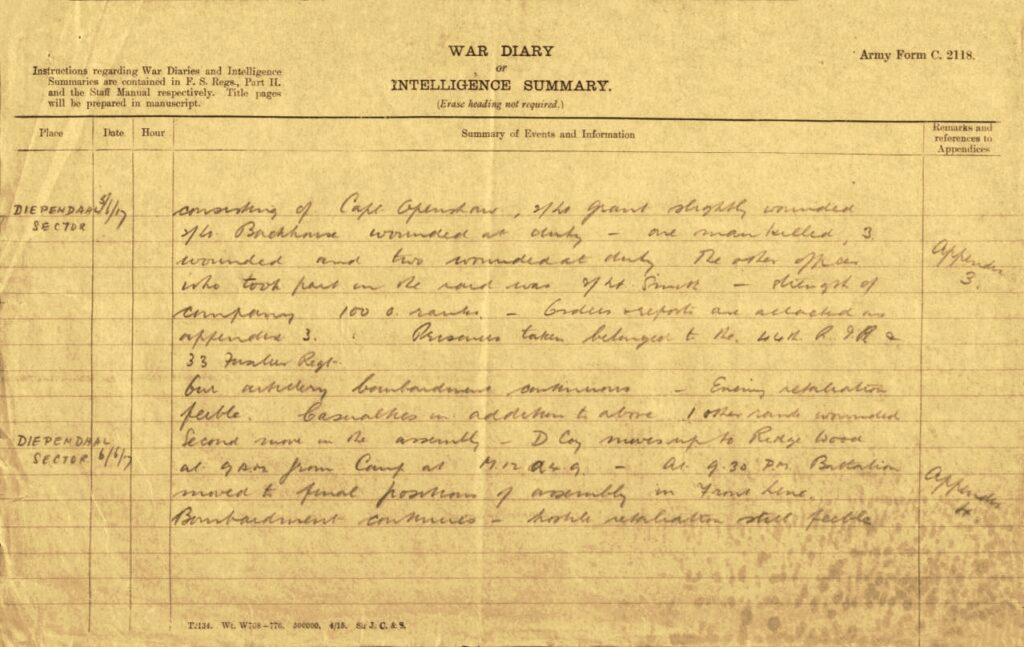 WAR DIARY
or
INTELLIGENCE SUMMARY.
(Erase heading not required.)
Army Form C. 2118.
Instructions regarding War Diaries and Intelligence
Summaries are contained in F. S. Regs., Part II.
and the Staff Manual respectively. Title pages
will be prepared in manuscript.
Place Date Hour Summary of Events and Information Remarks and
references to
Appendices
DIEPENDAAL 5/6/17 consisting of Capt Openshaw, 2/Lt Grant slightly wounded
SECTOR 2/Lt Backhouse wounded at duty – one man killed, 3
wounded and two wounded at duty The other officer Appendix
who took part in the raid was 2/Lt Smith – strength of 3.
company 100 o. ranks – Orders & reports are attached as
appendix 3. Prisoners taken belonged to the 44th R. I R &
33 Fusilier Regt.
Our artillery bombardment continuous – Enemy retaliation
feeble. Casualties in addition to above 1 other ranks wounded
DIEPENDAAL Second move in the assembly – D Coy moves up to Ridge Wood
SECTOR 6/6/17 at 9 from Camp at M.12 a 4.9. – At 9.30 P.M. Battalion Appendix
moved to final positions of assembly in Front Line. 4
Bombardment continues – hostile retaliation still feeble
T.134. Wt. W708–776. 500000. 4/15. Sir J. C. & S.